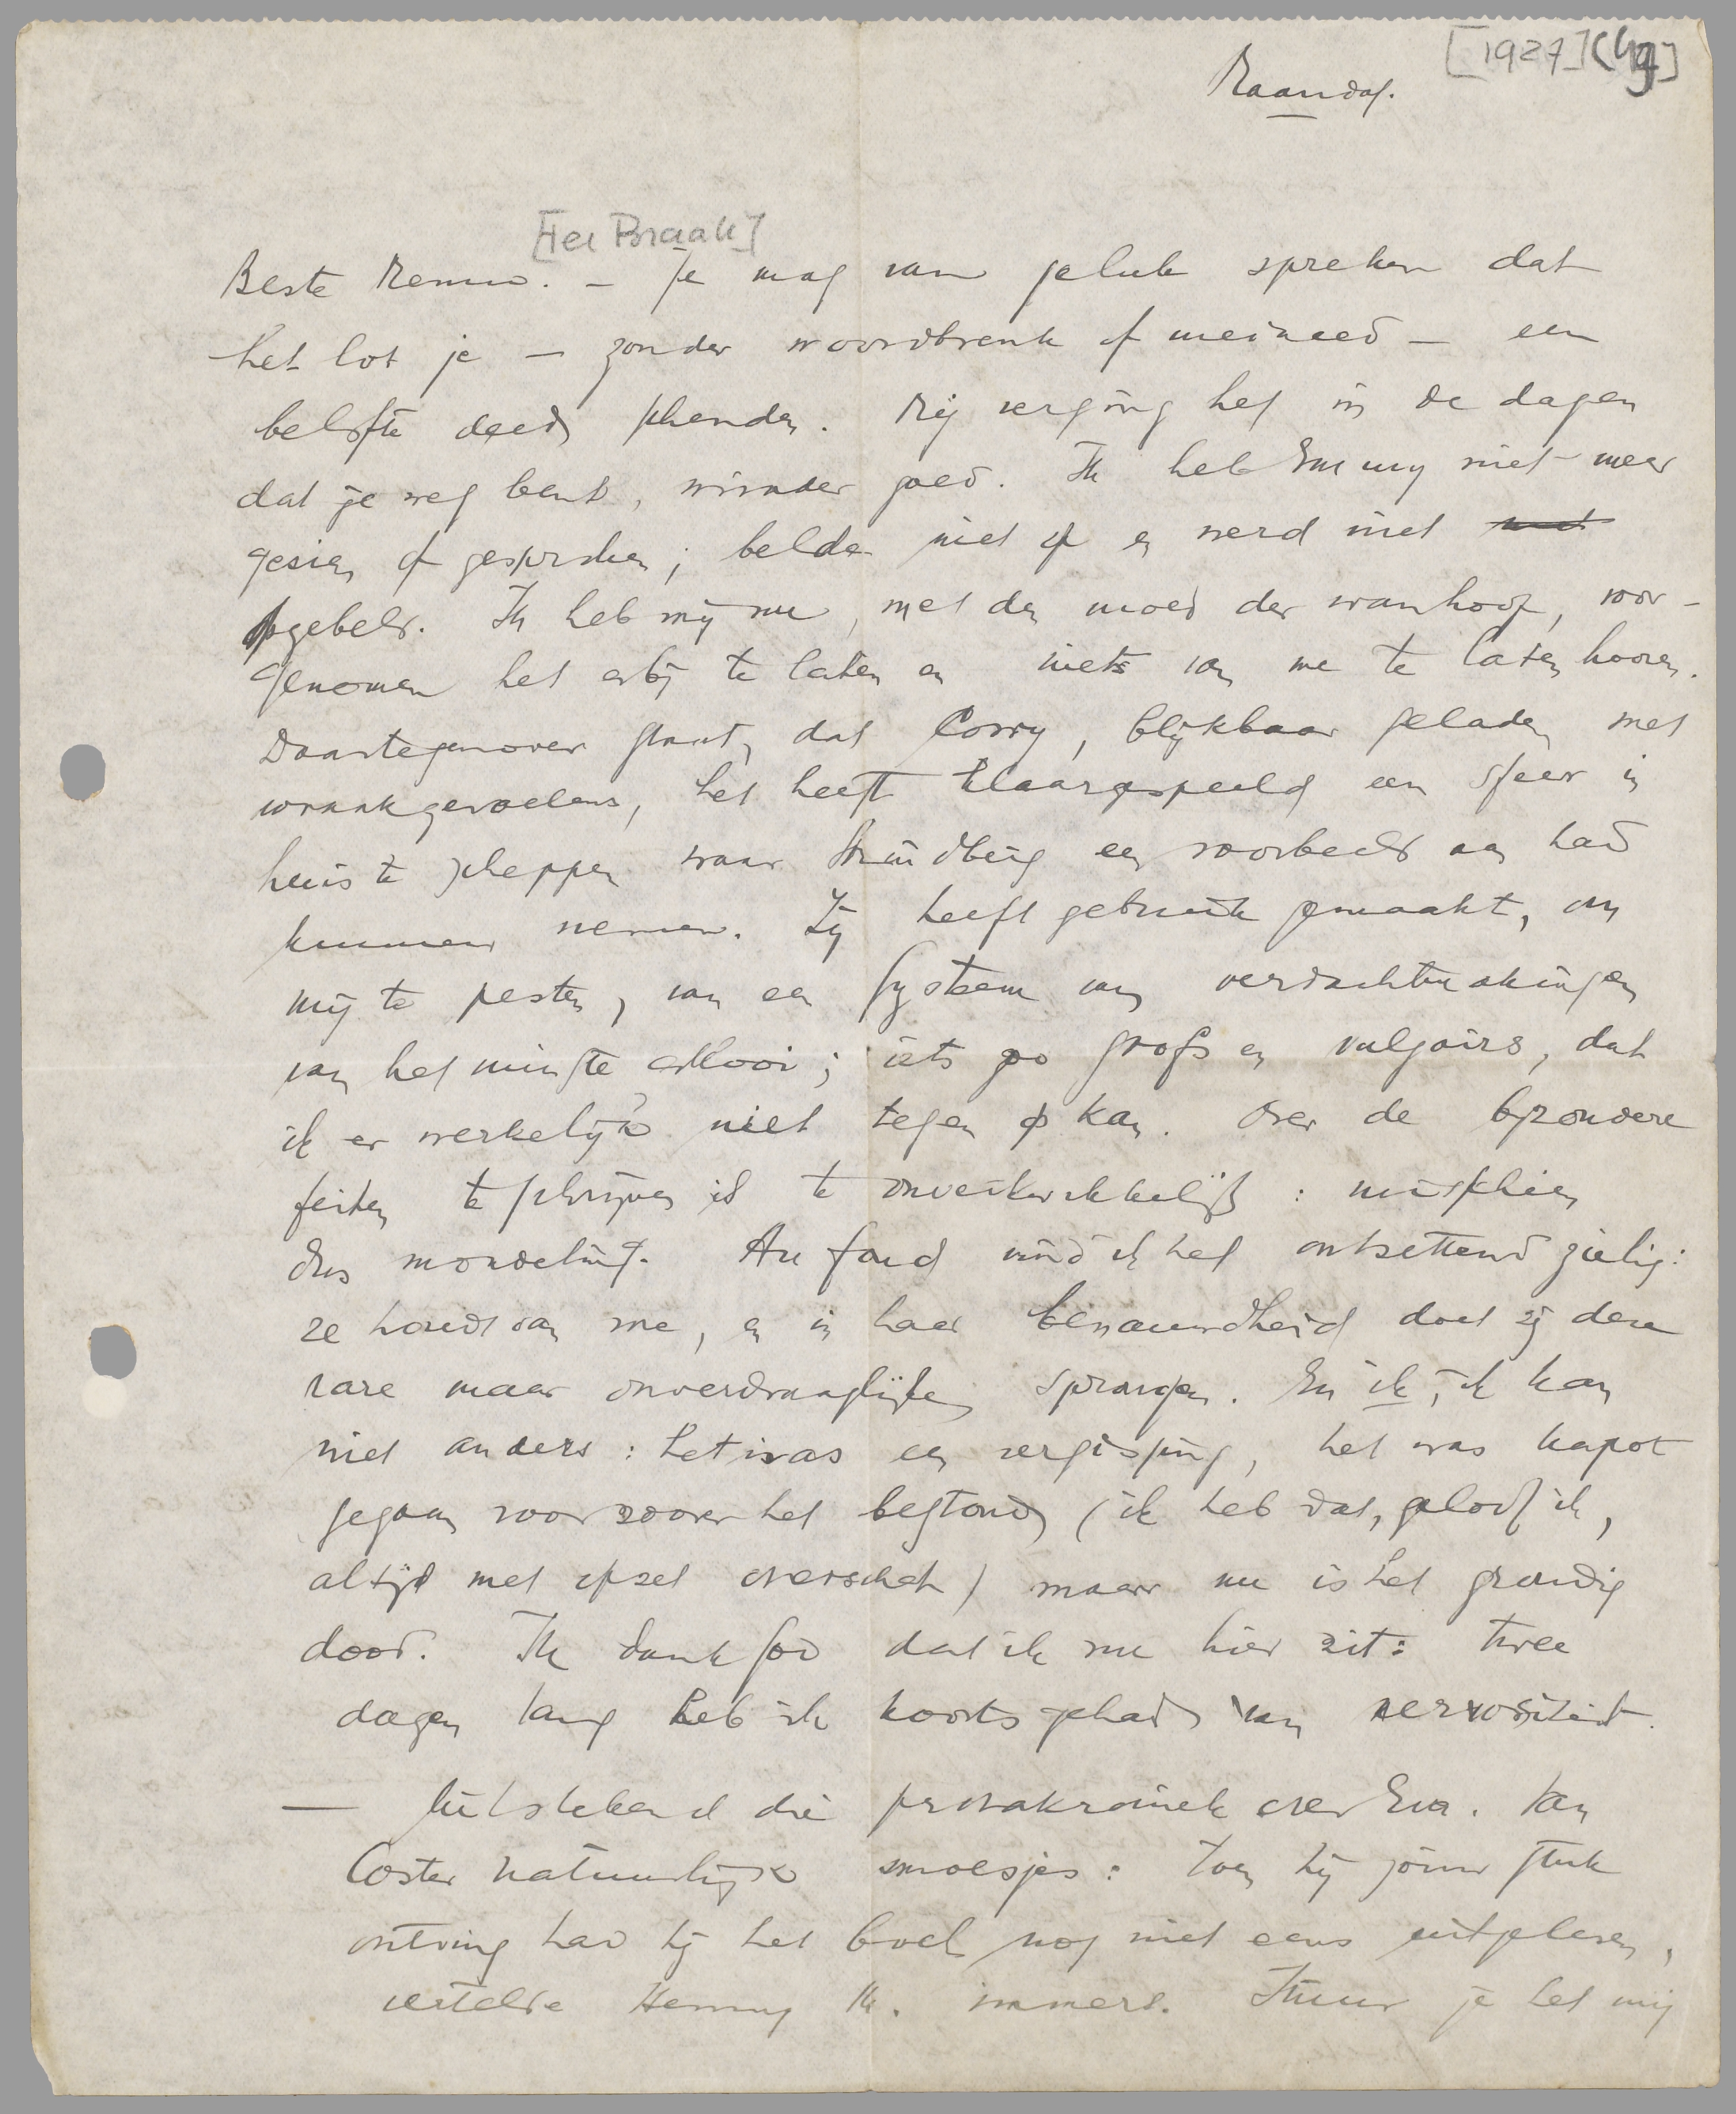 [1927] (Hg]
Maandag.
[Ter Braak]
Beste Menno. - Je mag van geluk spreken dat
het lot je - zonder woordbreuk of meineed - een
belofte deed schenden. Mij verging het in de dagen
dat je weg bent, minder goed. Ik heb Emmy niet meer
gezien of gesproken; belde niet op en werd niet
opgebeld. Ik heb mij nu, met den moed der wanhoop, voor-
genomen het erbij te laten en niets van me te laten hooren.
Daartegenover staat, dat Corry, blijkbaar geladen met
wraakgevoelens, het heeft klaargespeeld een sfeer in
huis te scheppen waar Strindberg een voorbeeld aan had
kunnen nemen. Zij heeft gebruik gemaakt, om
mij te pesten, van een systeem van verdachtmakingen
van het minste allooi; iets zoo grofs en vulgairs, dat
ik er werkelijk niet tegen op kan. Over de bijzondere
feiten te schrijven is te onverkwikkelijk: misschien
dus mondeling. Au fond vind ik het ontzettend zielig:
ze houdt van me, en in haar benauwdheid doet zij deze
rare maar onverdraaglijke sprongen. En ik, ik kan
niet anders: het was een vergissing, het was kapot
gegaan voorzoover het bestond (ik heb dat, geloof ik,
altijd met opzet overschat) maar nu is het grondig
dood. Ik dank god dat ik nu hier zit: twee
dagen lang heb ik koorts gehad van nervositeit.
- Uitstekend die prozakroniek over Eva. Van
Coster natuurlijk smoesjes: toen hij jouw stuk
ontving had hij het boek nog niet eens uitgelezen,
vertelde Henny M. immers. Stuur je het mij